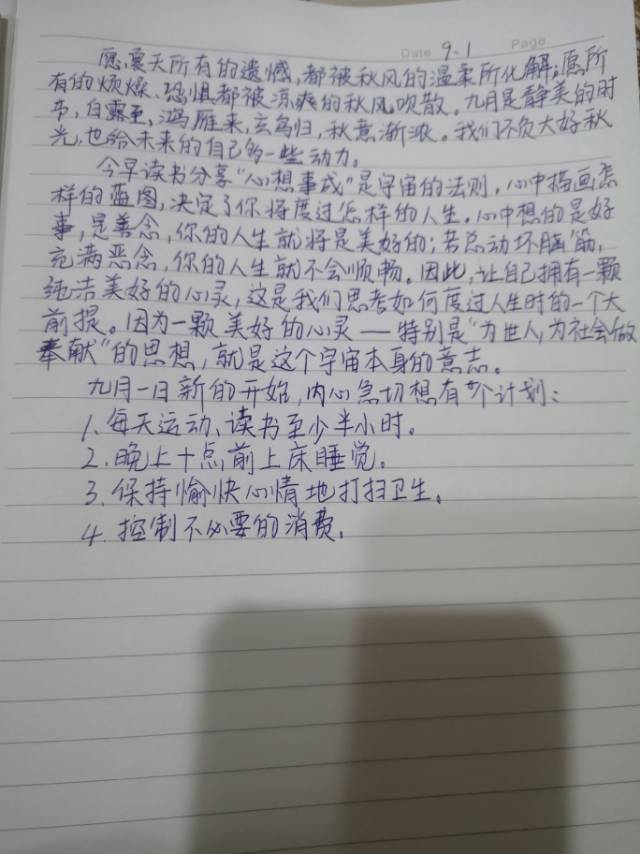 Date 9.1 Page
愿夏天所有的遗憾,都被秋风的温柔所化解;愿所
有的烦燥、恐惧都被凉爽的秋风吹散。九月是静美的时
节,白露至、鸿雁来,玄鸟归,秋意渐浓。我们不负大好秋
光,也给未来的自己多一些动力。
今早读书分享“心想事成”是宇宙的法则,心中描画怎
样的蓝图,决定了你将度过怎样的人生。心中想的是好
事,是善念,你的人生就将是美好的;若总动坏脑筋,
充满恶念,你的人生就不会顺畅。因此,让自己拥有一颗
纯洁美好的心灵,这是我们思考如何度过人生时的一个大
前提。因为一颗美好的心灵——特别是“为世人,为社会做
奉献”的思想,就是这个宇宙本身的意志。
九月一日新的开始,内心急切想有个计划:
1、每天运动、读书至少半小时。
2、晚上十点前上床睡觉。
3、保持愉快心情地打扫卫生。
4、控制不必要的消费。